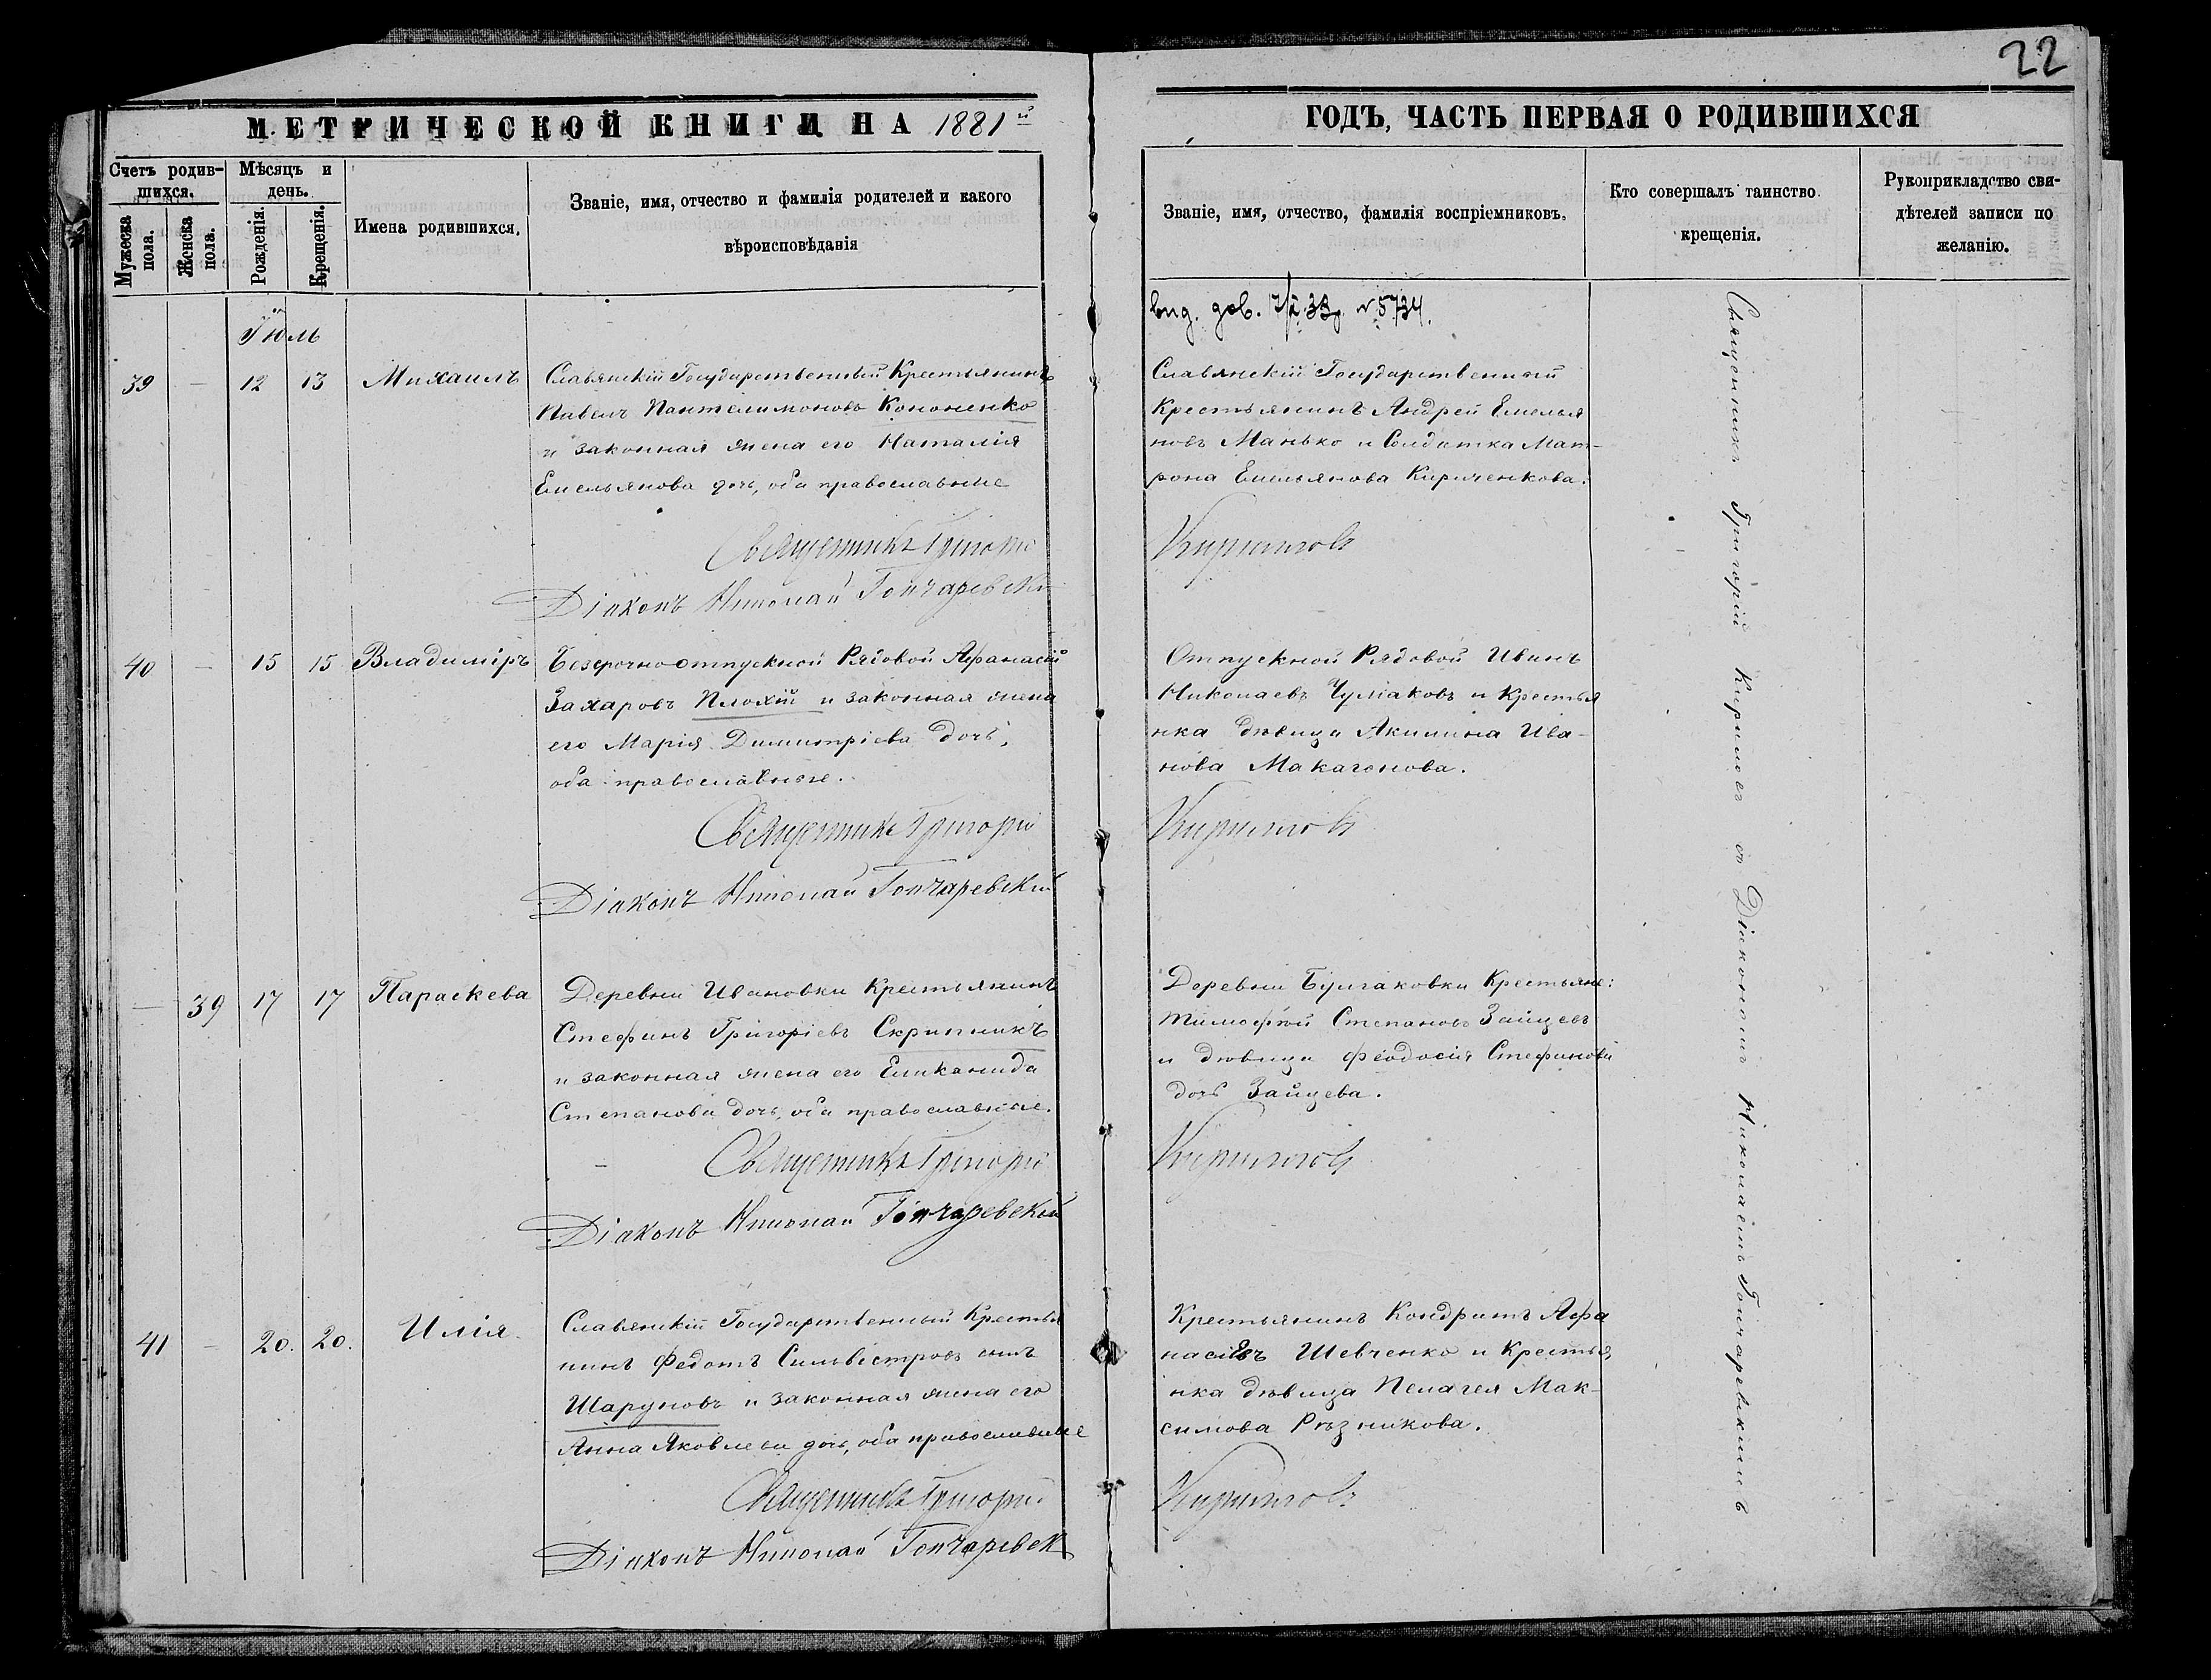 22
МЕТРИЧЕСКОЙ КНИГИ НА 1881й
Счетъ родив-
шихся.
Мужеска пола.
Женска пола.
Мѣсяцъ и
день.
Рожденія.
Крещенія.
Имена родившихся.
Званіе, имя, отчество и фамилія родителей и какого
вѣроисповѣданія
ГОДЪ, ЧАСТЬ ПЕРВАЯ О РОДИВШИХСЯ
Званіе, имя, отчество, фамилія воспріемниковъ.
Кто совершалъ таинство
крещенія.
Рукоприкладство сви-
дѣтелей записи по
желанію.
Іюль
39 — 12 13 Михаилъ
Славянскій Государственный Крестьянинъ
Павелъ Пантелимоновъ Кононенко
и законная жена его Наталія
Емельянова дочь, оба православные
Священникъ Григорій
Діаконъ Николай Гончаревскі
40 — 15 15 Владиміръ
Безсрочно-отпускной Рядовой Афанасій
Захаровъ Плохій и законная жена
его Марія Димитріева дочь,
оба православные.
Священникъ Григорій
Діаконъ Николай Гончаревскій
— 39 17 17 Параскева
Деревни Ивановки Крестьянинъ
Стефанъ Григоріевъ Скрипникъ
и законная жена его
Степанова дочь, оба православные.
Священникъ Григорій
Діаконъ Николай Гончаревскій
41 — 20. 20. Илія
Славянскій Государственный Крестья
нинъ Федотъ Сильвестровъ сынъ
Шаруновъ и законная жена его
Анна Яковлева дочь, оба православные
Священникъ Григорій
Діаконъ Николай Гончаревск
вид. дов. № 5734.
Славянскій Государственный
Крестьянинъ Андрей Емелья
новъ Манько и Солдатка Мат-
рона Емельянова Кириченкова.
Кирилловъ
Отпускной Рядовой Иванъ
Николаевъ Чумаковъ и Крестья
нка дѣвица Акилина Ива-
нова Макагонова.
Кирилловъ
Деревни Булгаковки Крестьяне:
Тимофей Степановъ Зайцевъ
и дѣвица Феодосія Стефанова
дочь Зайцева.
Кирилловъ
Крестьянинъ Кондратъ Афа
насіевъ Шевченко и Крестья
нка дѣвица Пелагея Мак-
симова Рѣзникова.
Кирилловъ
Священникъ Григорій Кириловъ съ Діакономъ Николаемъ Гончаревскимъ